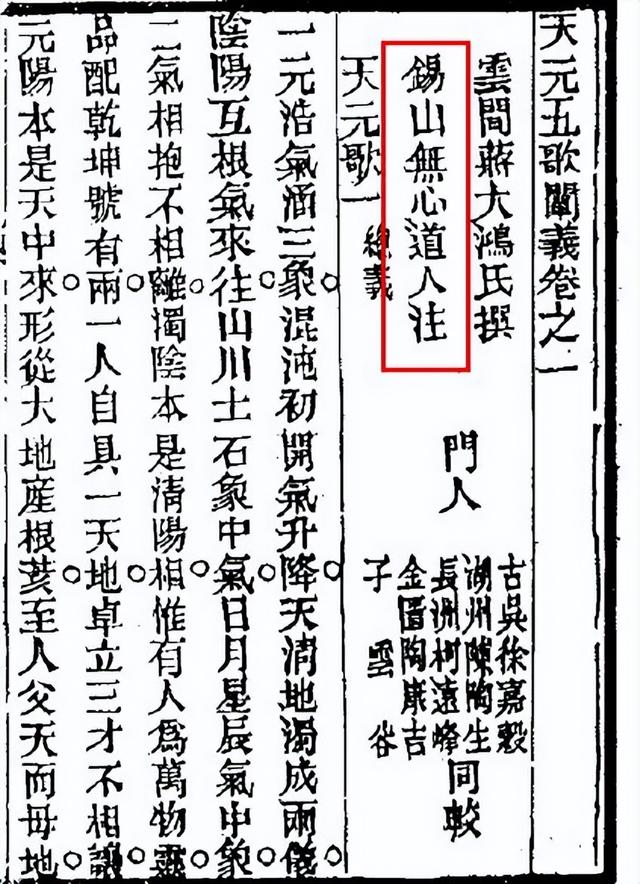 天元五歌闡義卷之一
雲間蔣大鴻氏撰
錫山無心道人注
門人
古吳徐嘉穀
湖州陳陶生
長洲柯遠峰
金匱陶康吉
子雲谷
同較
天元歌一 總義
一元浩氣涵三象混沌初開氣升降天清地濁成兩儀
陰陽互根氣來往山川土石象中氣日月星辰氣中象
二氣相抱不相離濁陰本是清陽相惟有人為萬物靈
品配乾坤號有兩一人自具一天地卓立三才不相讓
元陽本是天中來形從大地產根荄至人父天而母地